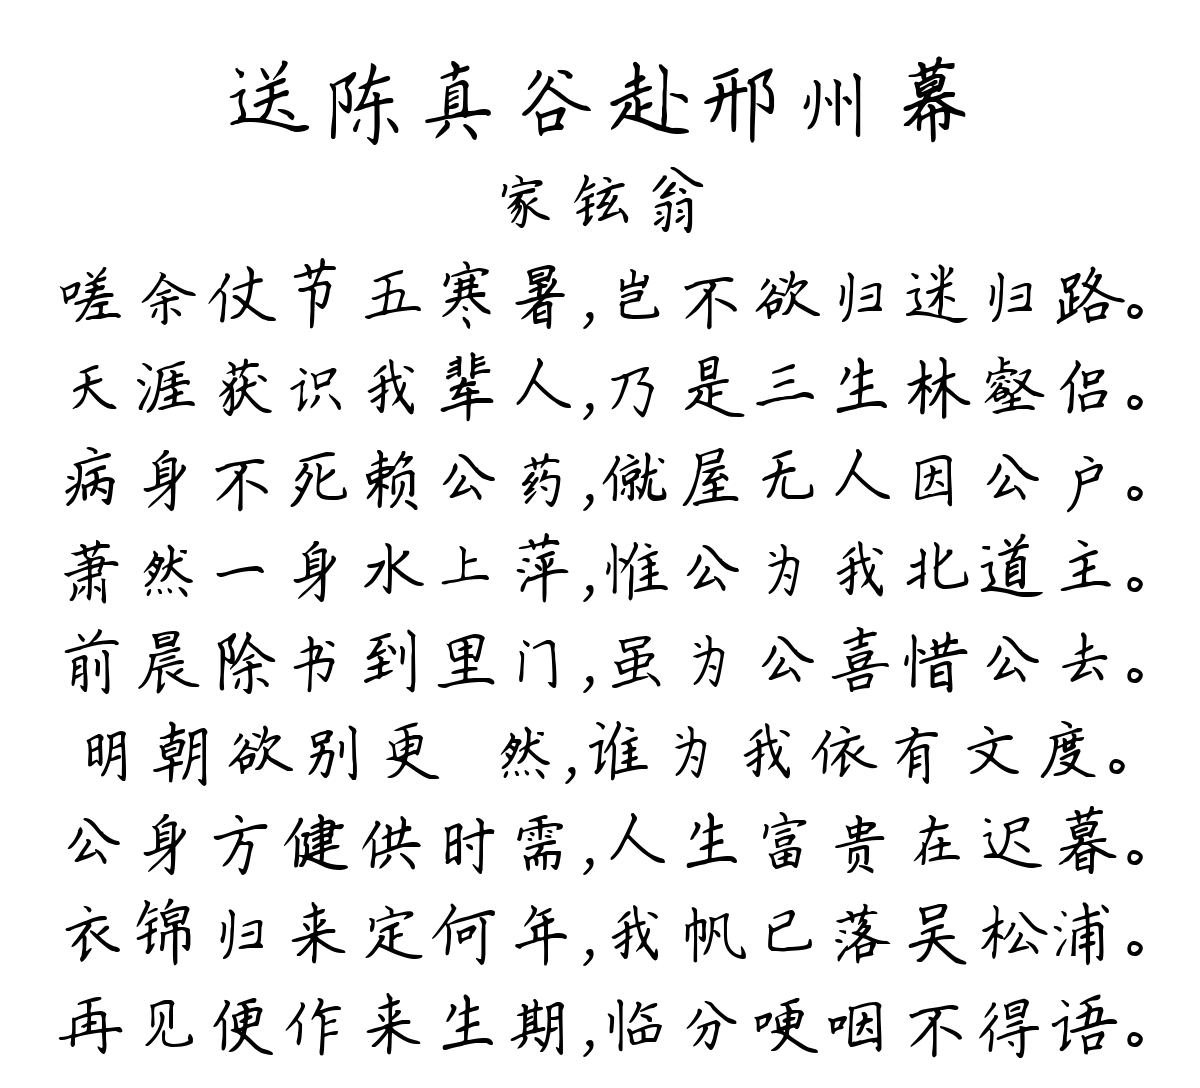 送陈真谷赴邢州幕
家铉翁
嗟余仗节五寒暑,岂不欲归迷归路。
天涯获识我辈人,乃是三生林壑侣。
病身不死赖公药,僦屋无人因公户。
萧然一身水上萍,惟公为我北道主。
前晨除书到里门,虽为公喜惜公去。
明朝欲别更 然,谁为我依有文度。
公身方健供时需,人生富贵在迟暮。
衣锦归来定何年,我帆已落吴松浦。
再见便作来生期,临分哽咽不得语。